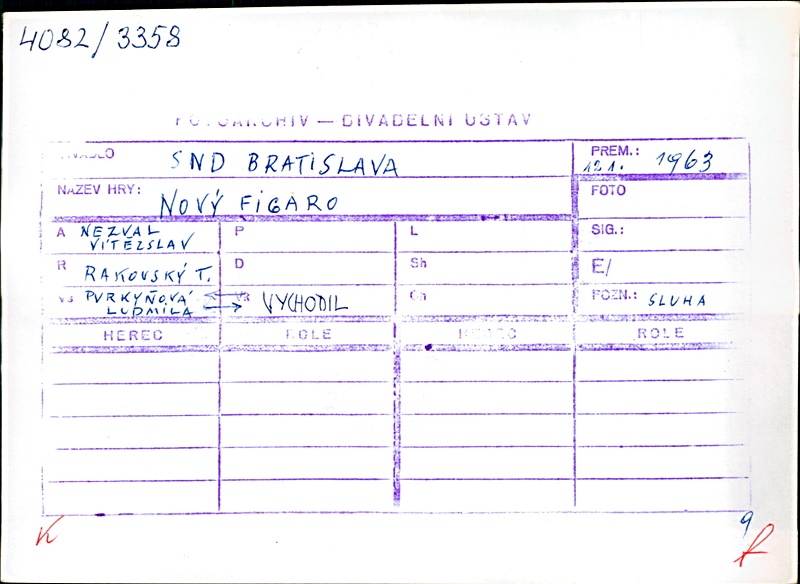 4082/3358
FOTOARCHIV — DIVADELNÍ ÚSTAV
DIVADLO SND BRATISLAVA PREM.: 12.1. 1963
NÁZEV HRY: NOVÝ FIGARO FOTO
A NEZVAL VÍTĚZSLAV P L SIG.:
R RAKOVSKÝ T. D Sh E/
VS PURKYŇOVÁ LUDMILA VK VYCHODIL Ch POZN.: SLUHA
HEREC ROLE HEREC ROLE
K 9